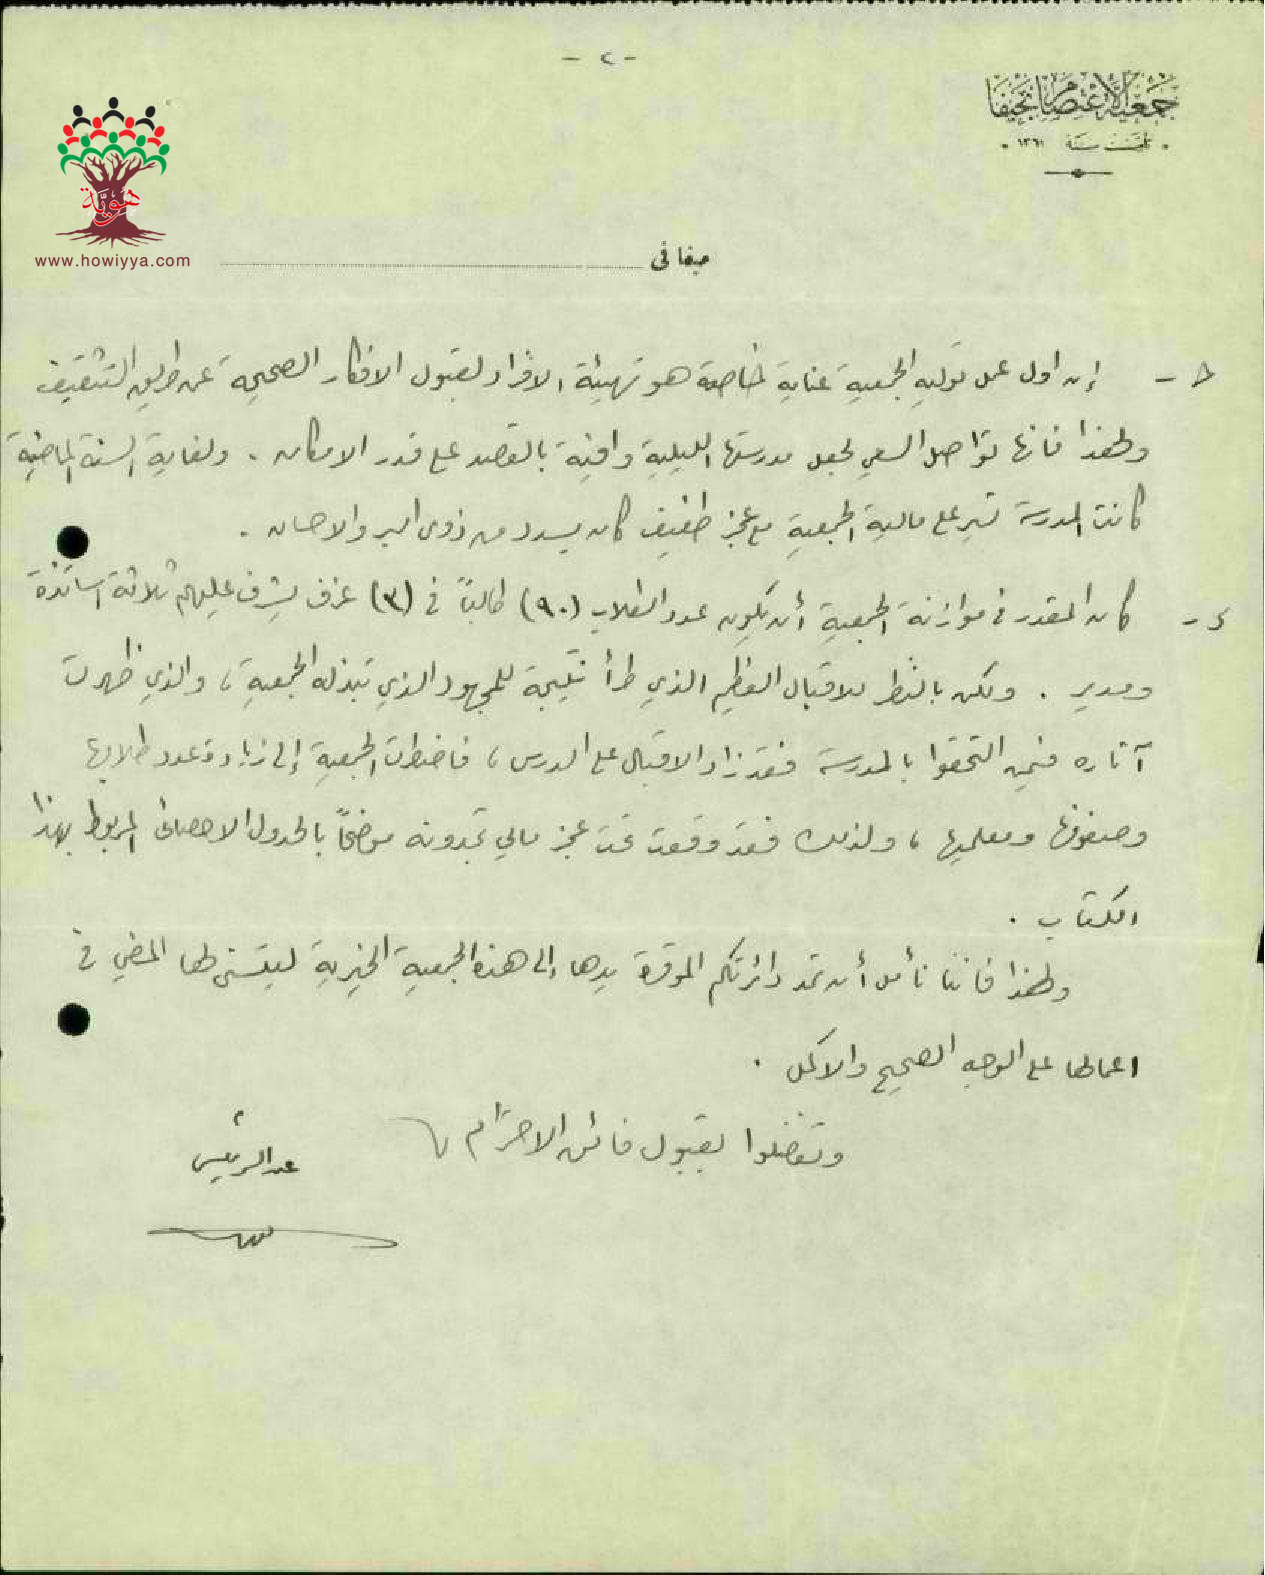 - ٢ -
جمعية الاعتصام بحيفا
تأسست سنة ١٣٦١
هوية
www.howiyya.com
حيفا في
إن اول عمل توليه الجمعية عناية خاصة هو تهيئة الافراد لقبول الافكار الصحيحة عن طريق التثقيف
ولهذا فانها تواصل السعي لجعل مدرستها الليلية وافية بالقصد على قدر الامكان . ولغاية السنة الماضية
كانت المدرسة تسير على مالية الجمعية مع عجز طفيف كان يسدد من ذوى البر والاحسان .
كان المقدر في موازنة الجمعية أن يكون عدد الطلاب (٩٠) طالباً في (٣) غرف يشرف عليهم ثلاثة اساتذة
ومدير . ولكن بالنظر للاقبال العظيم الذي طرأ نتيجة للمجهود الذي تبذله الجمعية ، والذي ظهرت
آثاره فيمن التحقوا بالمدرسة فقد زاد الاقبال على الدرس ، فاضطرت الجمعية إلى زيادة عدد طلابها
وصفوفها ومعلميها ، ولذلك فقد وقعت تحت عجز مالي تجدونه موضحاً بالجدول الاحصائى المربوط بهذا
الكتاب .
ولهذا فاننا نأمل أن تمد دائرتكم الموقرة يدها إلى هذه الجمعية الخيرية ليتسنى لها المضي في
اعمالها على الوجه الصحيح والاكمل .
وتفضلوا بقبول فائق الاحترام
عن الرئيس